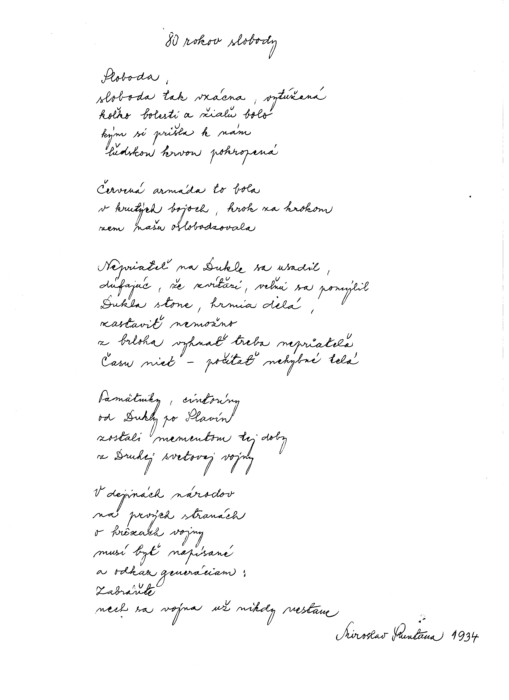 80 rokov slobody
Sloboda,
sloboda tak vzácna, vytúžená
koľko bolesti a žiaľu bolo
kým si prišla k nám
ľudskou krvou pokropená
Červená armáda to bola
v krutých bojoch, krok za krokom
zem našu oslobodzovala
Nepriateľ na Dukle sa usadil,
dúfajúc, že zvíťazí, veľmi sa pomýlil
Dukla stone, hrmia delá,
zastaviť nemožno
z brloha vyhnať treba nepriateľa
Času niet - počítať nehybné telá
Pamätníky, cintoríny
od Dukly po Slavín
zostali mementom tej doby
z Druhej svetovej vojny
V dejinách národov
na prvých stranách
o hrôzach vojny
musí byť napísané
a odkaz generáciam:
Zabráňte
nech sa vojna už nikdy nestane
Miroslav 1934